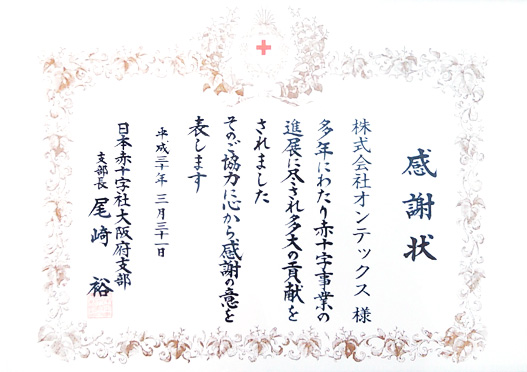 感謝状
株式会社オンテックス 様
多年にわたり赤十字事業の
進展に尽され多大の貢献を
されました
そのご協力に心から感謝の意を
表します
平成三十年 三月三十一日
日本赤十字社大阪府支部
支部長 尾﨑 裕